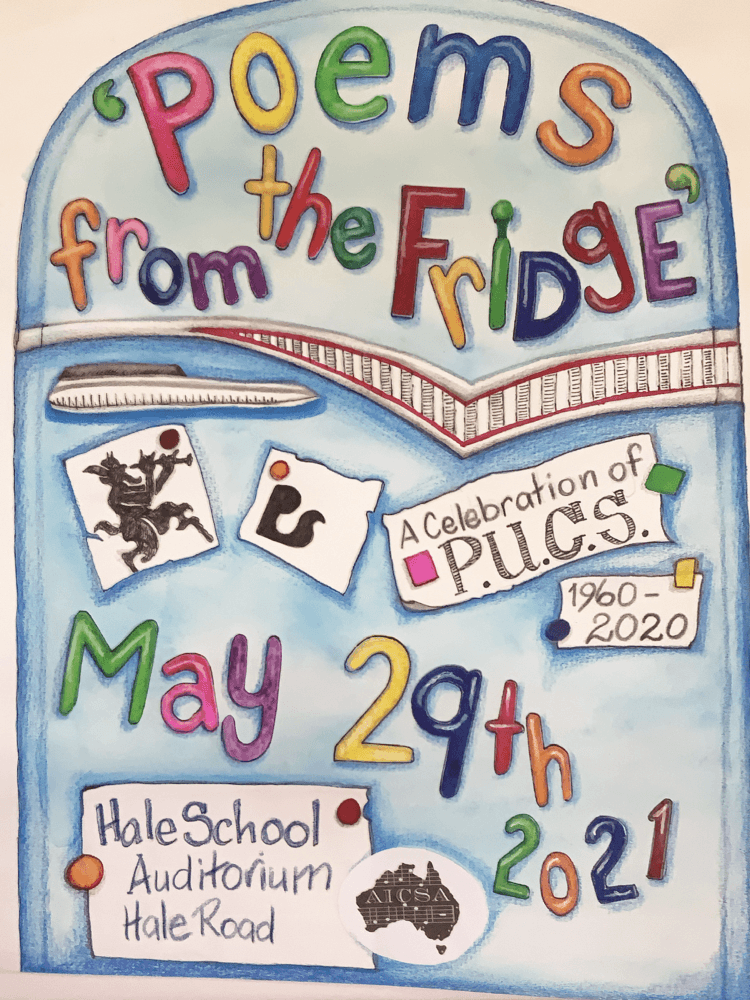 'Poems
from the FriDgE'
A Celebration of
P.U.C.S.
1960-
2020
May 29th
2021
Hale School
Auditorium
Hale Road
AICSA